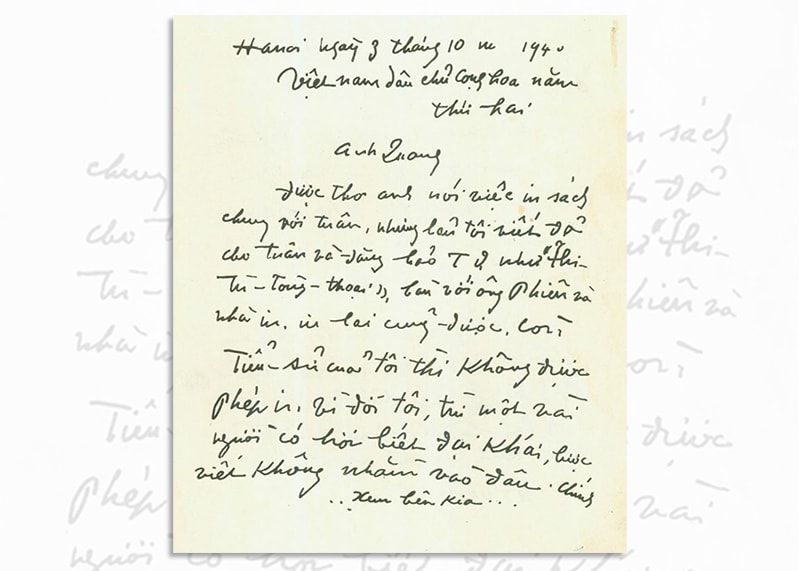 Hanoi ngày 3 tháng 10 năm 194
Việt nam dân chủ cộng hòa năm
thứ hai
anh Quang
được thơ anh nói việc in sách
chung với tuần, những lần tôi viết để
cho tuần và đăng báo Tự như "Thi-
Tù-Tùng-thoại", bàn với ông Phiên và
nhà in, in lại cũng được, Còn
Tiểu-sử của tôi thì không được
phép in, vì đời tôi, trừ một vài
người có hơi biết đại khái,
viết không nhằm vào đâu. Chính
..xem bên kia...